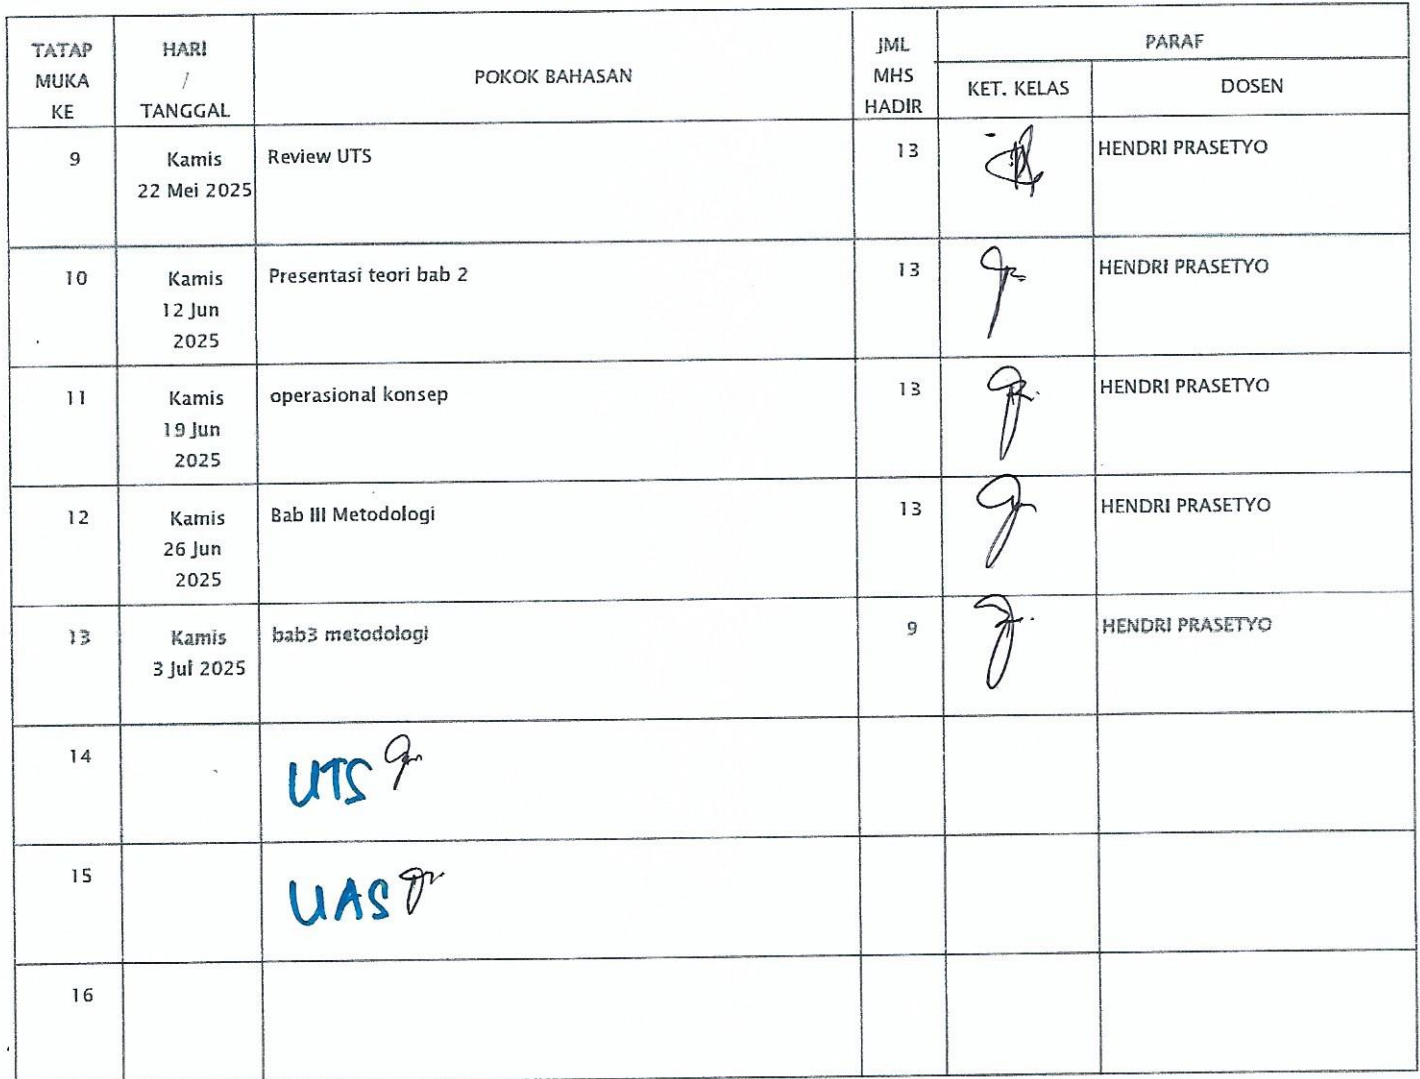 TATAP MUKA KE
HARI / TANGGAL
POKOK BAHASAN
JML MHS HADIR
PARAF
KET. KELAS
DOSEN
9
Kamis
22 Mei 2025
Review UTS
13
HENDRI PRASETYO
10
Kamis
12 Jun
2025
Presentasi teori bab 2
13
HENDRI PRASETYO
11
Kamis
19 Jun
2025
operasional konsep
13
HENDRI PRASETYO
12
Kamis
26 Jun
2025
Bab III Metodologi
13
HENDRI PRASETYO
13
Kamis
3 Jul 2025
bab3 metodologi
9
HENDRI PRASETYO
14
UTS
15
UAS
16